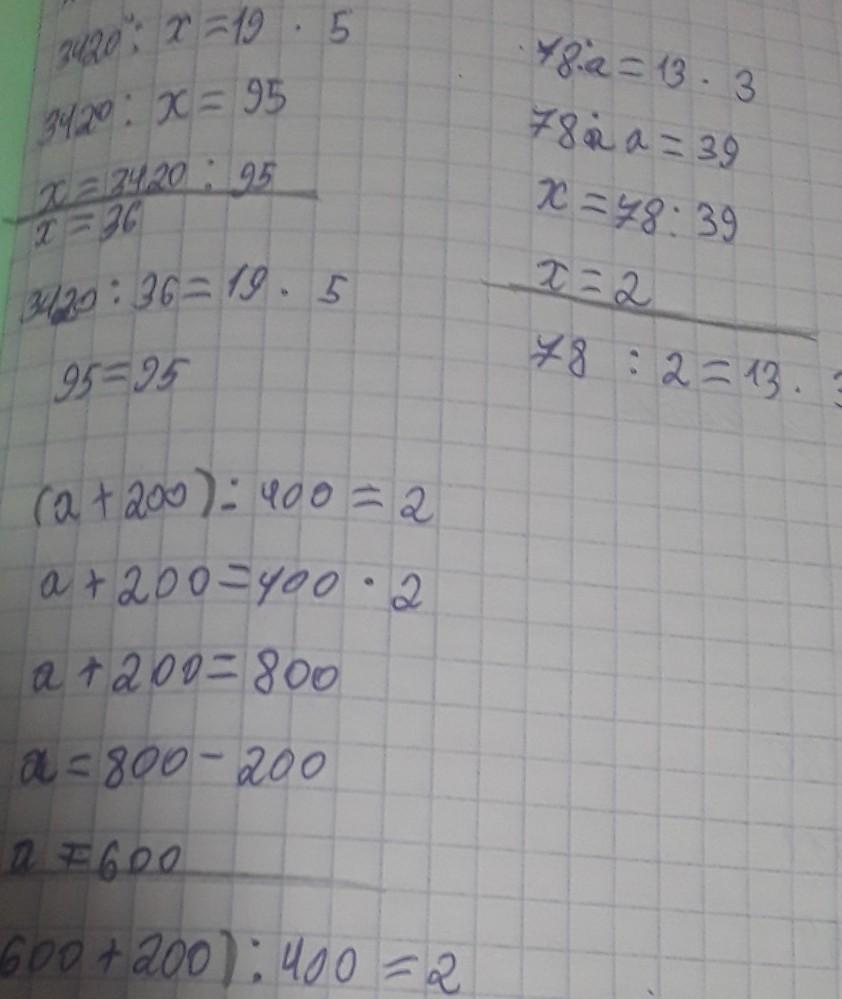 3420 : x = 19 · 5
3420 : x = 95
x = 3420 : 95
x = 36
3420 : 36 = 19 · 5
95 = 95
78 : a = 13 · 3
78 : a = 39
x = 78 : 39
x = 2
78 : 2 = 13 ·
(a + 200) : 400 = 2
a + 200 = 400 · 2
a + 200 = 800
a = 800 - 200
a = 600
600 + 200) : 400 = 2